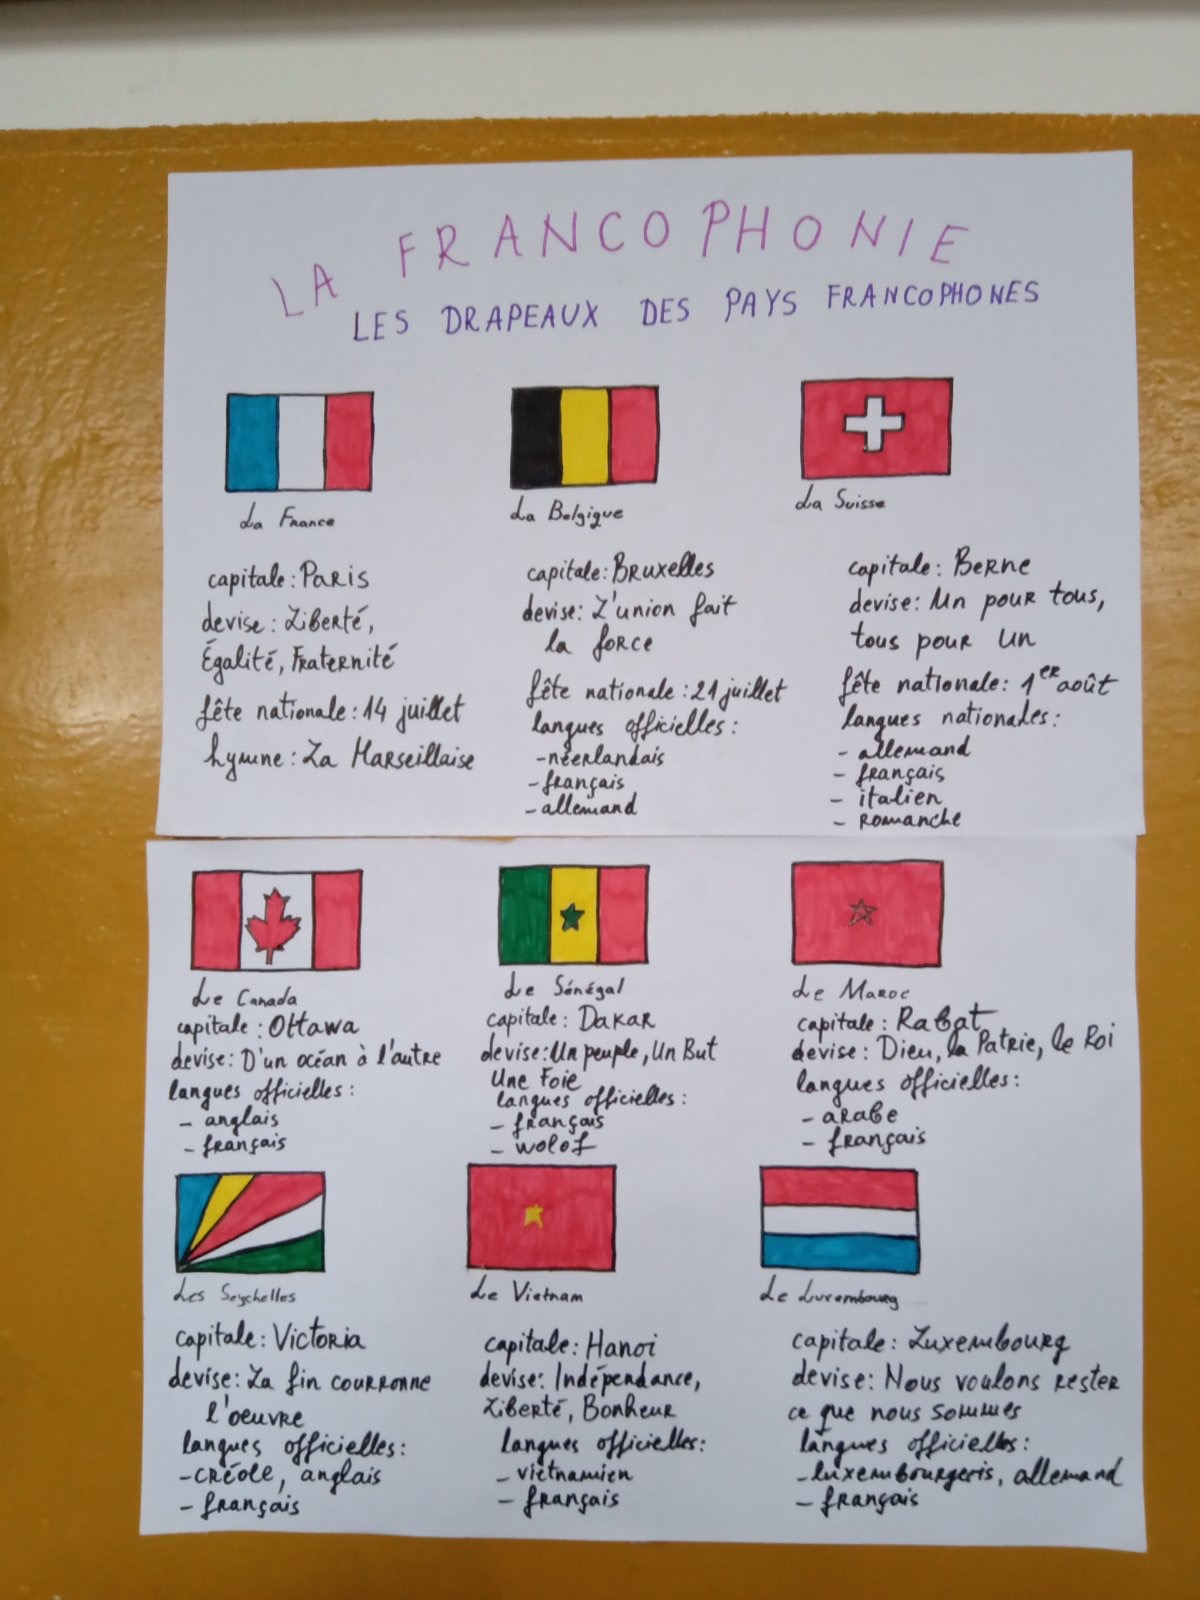 LA FRANCOPHONIE
LES DRAPEAUX DES PAYS FRANCOPHONES
La France
capitale: Paris
devise: Liberté,
Égalité, Fraternité
fête nationale: 14 juillet
hymne: La Marseillaise
La Belgique
capitale: Bruxelles
devise: L'union fait
la force
fête nationale: 21 juillet
langues officielles:
-néerlandais
-français
-allemand
La Suisse
capitale: Berne
devise: Un pour tous,
tous pour un
fête nationale: 1er août
langues nationales:
- allemand
- français
- italien
- romanche
Le Canada
capitale: Ottawa
devise: D'un océan à l'autre
langues officielles:
- anglais
- français
Le Sénégal
capitale: Dakar
devise: Un peuple, Un But
Une Foie
langues officielles:
- français
- wolof
Le Maroc
capitale: Rabat
devise: Dieu, la Patrie, le Roi
langues officielles:
- arabe
- français
Les Seychelles
capitale: Victoria
devise: La fin couronne
l'oeuvre
langues officielles:
-créole, anglais
- français
Le Vietnam
capitale: Hanoi
devise: Indépendance,
Liberté, Bonheur
langues officielles:
- vietnamien
- français
Le Luxembourg
capitale: Luxembourg
devise: Nous voulons rester
ce que nous sommes
langues officielles:
-luxembourgeris, allemand
- français